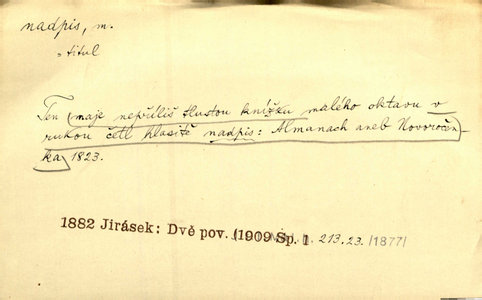 nadpis, m.
= titul
Ten (maje nepříliš tlustou knížku malého oktavu v
rukou četl hlasitě nadpis: Almanach aneb Novoročen-
ka) 1823.
1882 Jirásek: Dvě pov. (1909 Sp. 1 213.23. /1877/